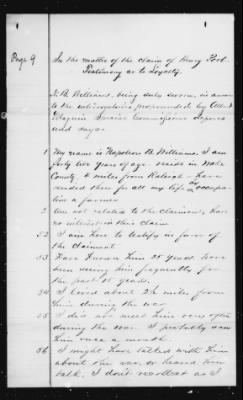 Page 9
In the matter of the claim of Henry Pool
Testimony as to Loyalty.
N. B. Williams, being duly sworn, in answer
to the interrogatories propounded by
Commissioner
and says
1 My name is Napoleon B. Williams. I am
forty two years of age. reside in Wake
County 6 miles from Raleigh - have
resided there for all my life occupa-
tion a farmer
2 Am not related to the claimant, have
no interest in this claim
52 I am here to testify in favor of
the claimant
53 Have known him 25 years have
been seeing him frequently for
the past 15 years.
54 I lived about 2½ miles from
him during the war
55 I did not meet him very often
during the war. I probably saw
him once a month.
56 I might have talked with him
about the war or heard him
talk, I don't recollect as I